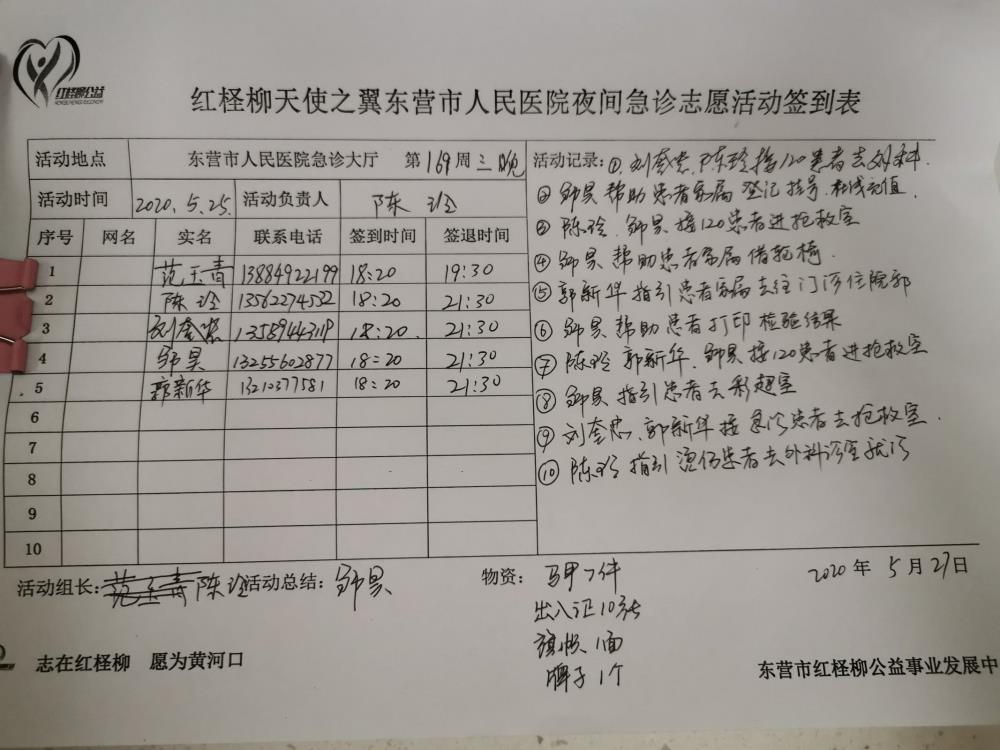 红柽柳公益
红柽柳天使之翼东营市人民医院夜间急诊志愿活动签到表
活动地点 东营市人民医院急诊大厅 第169周三晚
活动时间 2020.5.25. 活动负责人 陈玲
序号 网名 实名 联系电话 签到时间 签退时间
1 范玉青 13884922199 18:20 19:30
2 陈玲 13562274532 18:20 21:30
3 刘奎忠 13589443119 18:20. 21:30
4 邹昊 13255602877 18:20 21:30
5 郭新华 13210377581 18:20 21:30
6
7
8
9
10
活动记录:①刘奎忠,陈玲接120患者去外科.
② 邹昊帮助患者家属登记挂号.充值.
③ 陈玲、邹昊接120患者进抢救室
④ 邹昊 帮助患者家属借轮椅.
⑤ 郭新华指引患者家属去往门诊住院部
⑥ 邹昊帮助患者打印检验结果
⑦ 陈玲 郭新华、邹昊接120患者进抢救室
⑧ 邹昊 指引患者去彩超室
⑨ 刘奎忠、郭新华接急诊患者去抢救室.
⑩ 陈玲 指引烫伤患者去外科诊室就诊
活动组长:范玉青陈玲 活动总结:邹昊 物资:马甲7件
出入证10张
旗帜1面
牌子1个
2020年5月27日
志在红柽柳 愿为黄河口
东营市红柽柳公益事业发展中